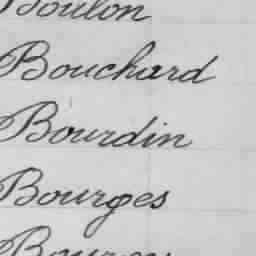 Boulon
Bouchard
Bourdin
Bourges